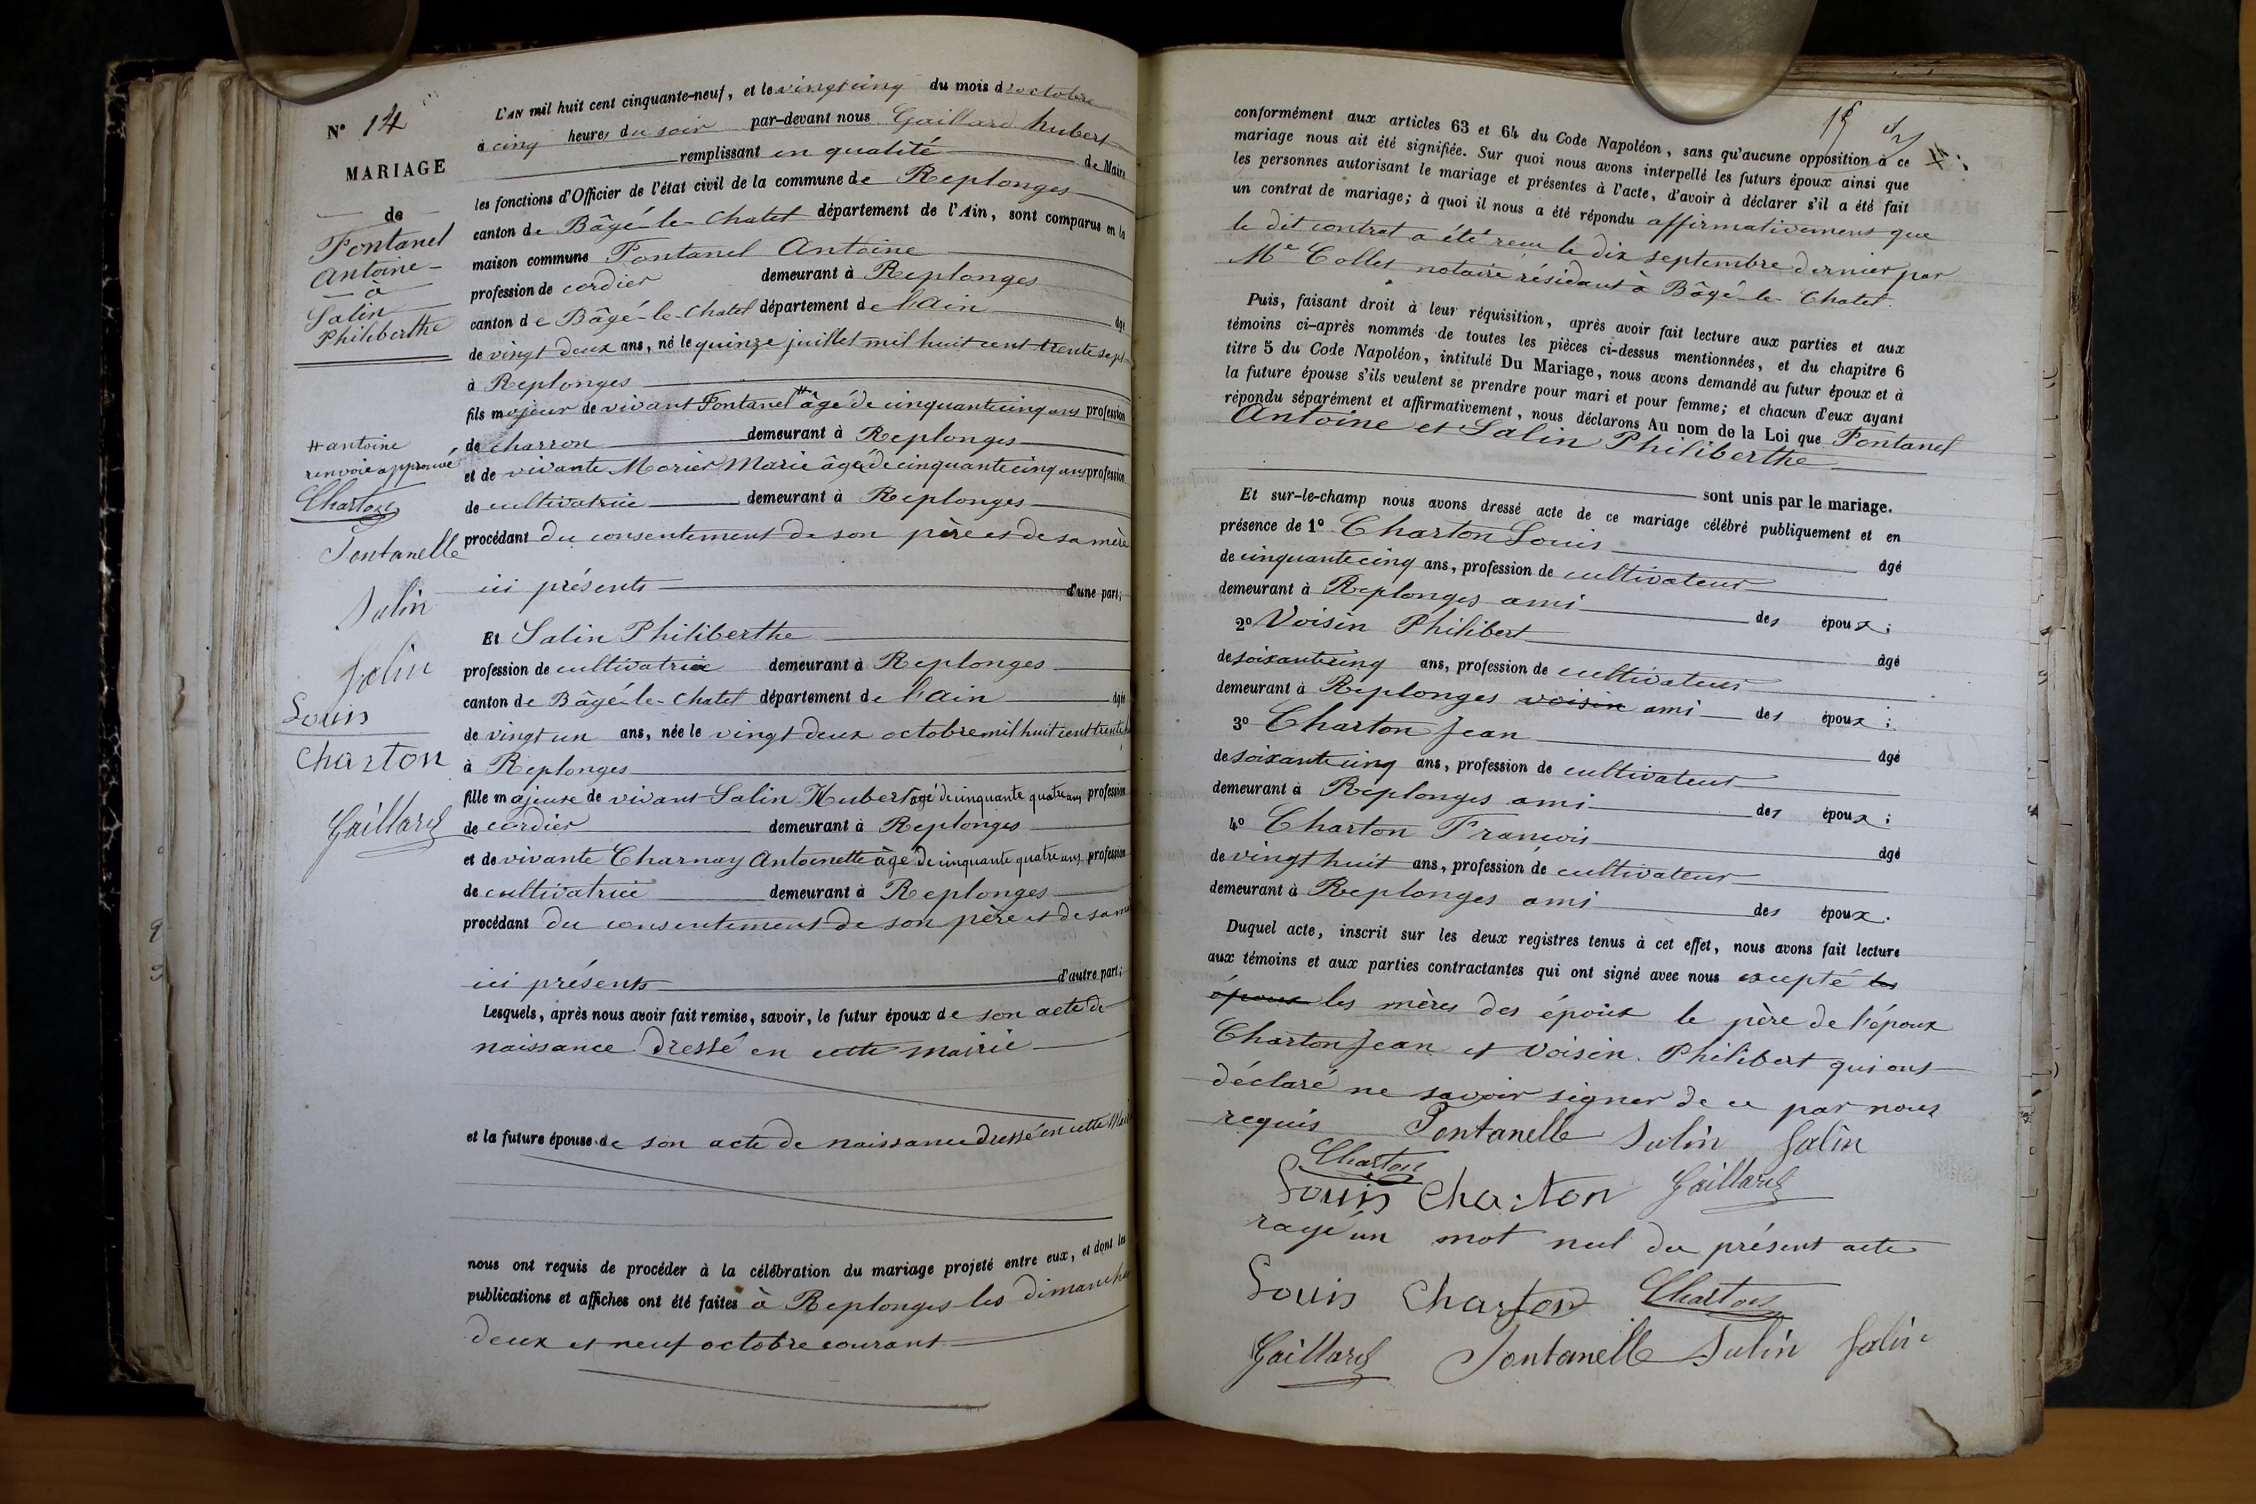 N° 14
MARIAGE
de
Fontanel
Antoine
à
Salin
Philiberthe
# antoine
renvoie approuvé
Charton
Fontanelle
Salin
Salin
Louis
Charton
Gaillard
L'AN mil huit cent cinquante-neuf, et le vingt cinq du mois d'octobre
à cinq heures du soir par-devant nous Gaillard hubert
remplissant en qualité de Maire
les fonctions d'Officier de l'état civil de la commune de Replonges
canton de Bâgé-le-Chatel département de l'Ain, sont comparus en la
maison commune Fontanel Antoine
profession de cordier demeurant à Replonges
canton de Bâgé-le-Chatel département de l'ain âgé
de vingt deux ans, né le quinze juillet mil huit cent trente sept
à Replonges
fils majeur de vivant Fontanel # âgé de cinquante cinq ans profession
de charron demeurant à Replonges
et de vivante Morier Marie âgée de cinquante cinq ans profession
de cultivatrice demeurant à Replonges
procédant du consentement de son père et de sa mère
ici présents d'une part;
Et Salin Philiberthe
profession de cultivatrice demeurant à Replonges
canton de Bâgé-le-Chatel département de l'ain âgée
de vingt un ans, née le vingt deux octobre mil huit cent trente
à Replonges
fille majeure de vivant Salin Hubert agé de cinquante quatre ans profession
de cordier demeurant à Replonges
et de vivante Charnay Antoinette âgé de cinquante quatre ans profession
de cultivatrice demeurant à Replonges
procédant du consentement de son père et de sa
ici présents d'autre part;
Lesquels, après nous avoir fait remise, savoir, le futur époux de son acte de
naissance dressé en cette mairie
et la future épouse de son acte de naissance dressé en cette
nous ont requis de procéder à la célébration du mariage projeté entre eux, et dont les
publications et affiches ont été faites à Replonges les dimanches
deux et neuf octobre courant
15
conformément aux articles 63 et 64 du Code Napoléon, sans qu'aucune opposition à ce
mariage nous ait été signifiée. Sur quoi nous avons interpellé les futurs époux ainsi que
les personnes autorisant le mariage et présentes à l'acte, d'avoir à déclarer s'il a été fait
un contrat de mariage; à quoi il nous a été répondu affirmativement que
le dit contrat a été reçu le dix septembre dernier par
Me Collet notaire résidant à Bâgé-le-Chatel.
Puis, faisant droit à leur réquisition, après avoir fait lecture aux parties et aux
témoins ci-après nommés de toutes les pièces ci-dessus mentionnées, et du chapitre 6
titre 5 du Code Napoléon, intitulé Du Mariage, nous avons demandé au futur époux et à
la future épouse s'ils veulent se prendre pour mari et pour femme; et chacun d'eux ayant
répondu séparément et affirmativement, nous déclarons Au nom de la Loi que Fontanel
Antoine et Salin Philiberthe
sont unis par le mariage.
Et sur-le-champ nous avons dressé acte de ce mariage célébré publiquement et en
présence de 1° Charton Louis âgé
de cinquante cinq ans, profession de cultivateur
demeurant à Replonges ami des époux;
2° Voisin Philibert âgé
de soixante cinq ans, profession de cultivateur
demeurant à Replonges voisin ami des époux;
3° Charton Jean âgé
de soixante cinq ans, profession de cultivateur
demeurant à Replonges ami des époux;
4° Charton François âgé
de vingt huit ans, profession de cultivateur
demeurant à Replonges ami des époux.
Duquel acte, inscrit sur les deux registres tenus à cet effet, nous avons fait lecture
aux témoins et aux parties contractantes qui ont signé avec nous excepté les
époux les mères des époux le père de l'époux
Charton Jean et Voisin Philibert qui ont
déclaré ne savoir signer de ce par nous
requis Fontanelle Salin Salin
Charton
Louis Charton Gaillard
rayé un mot nul du présent acte
Louis Charton Charton
Gaillard Fontanelle Salin Salin